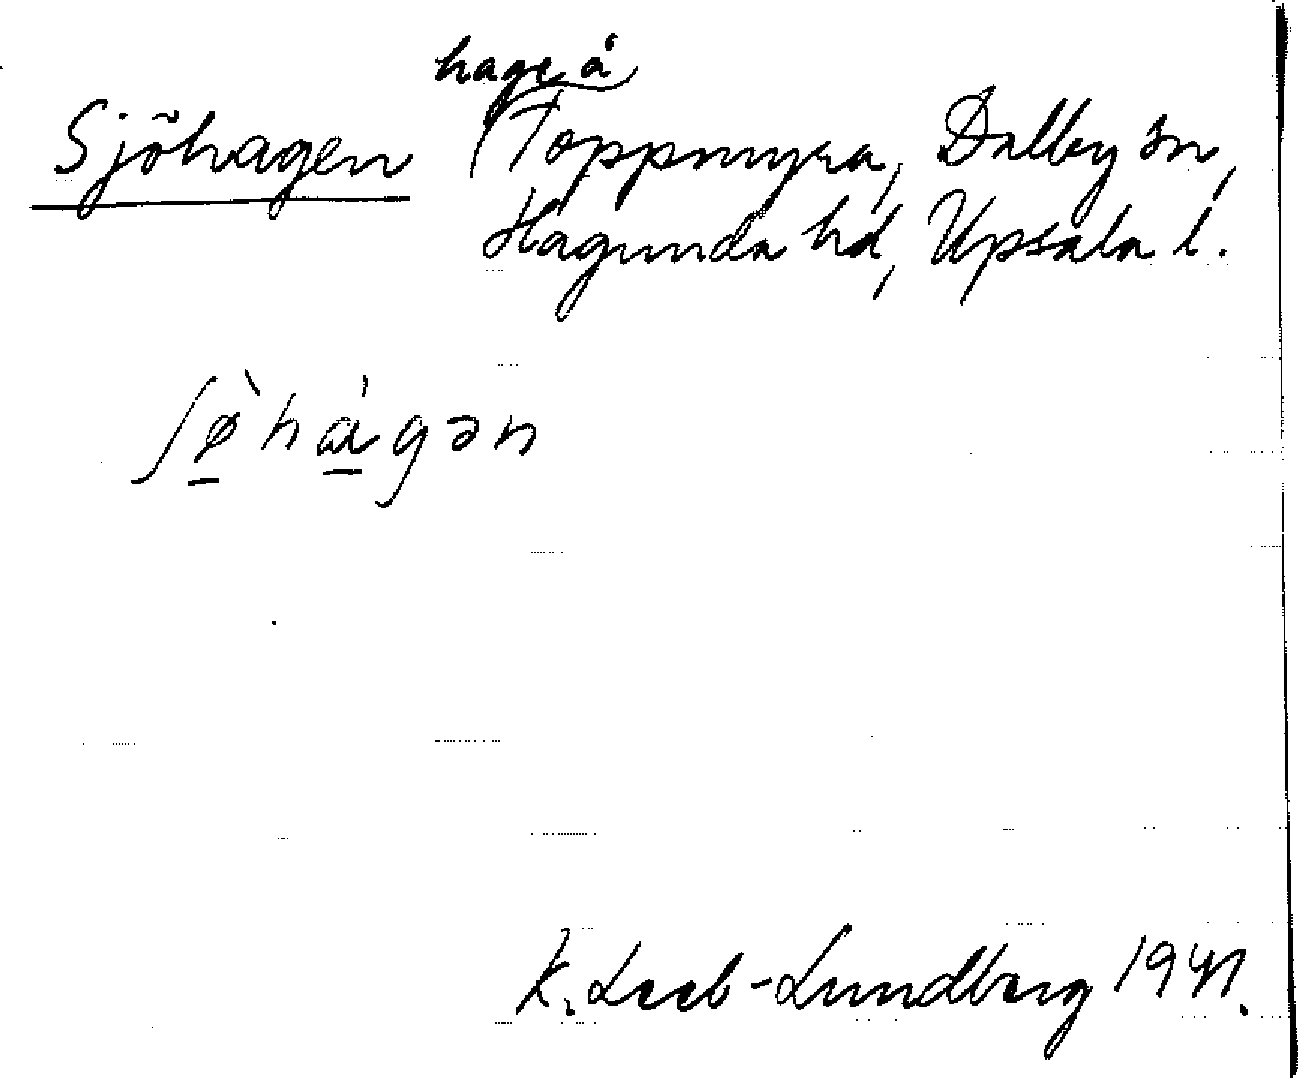 hage å
Sjöhagen Toppmyra, Dalby sn,
Hagunda hd, Upsala l.
ʃø̀hágən
K. Leeb-Lundberg 1941.